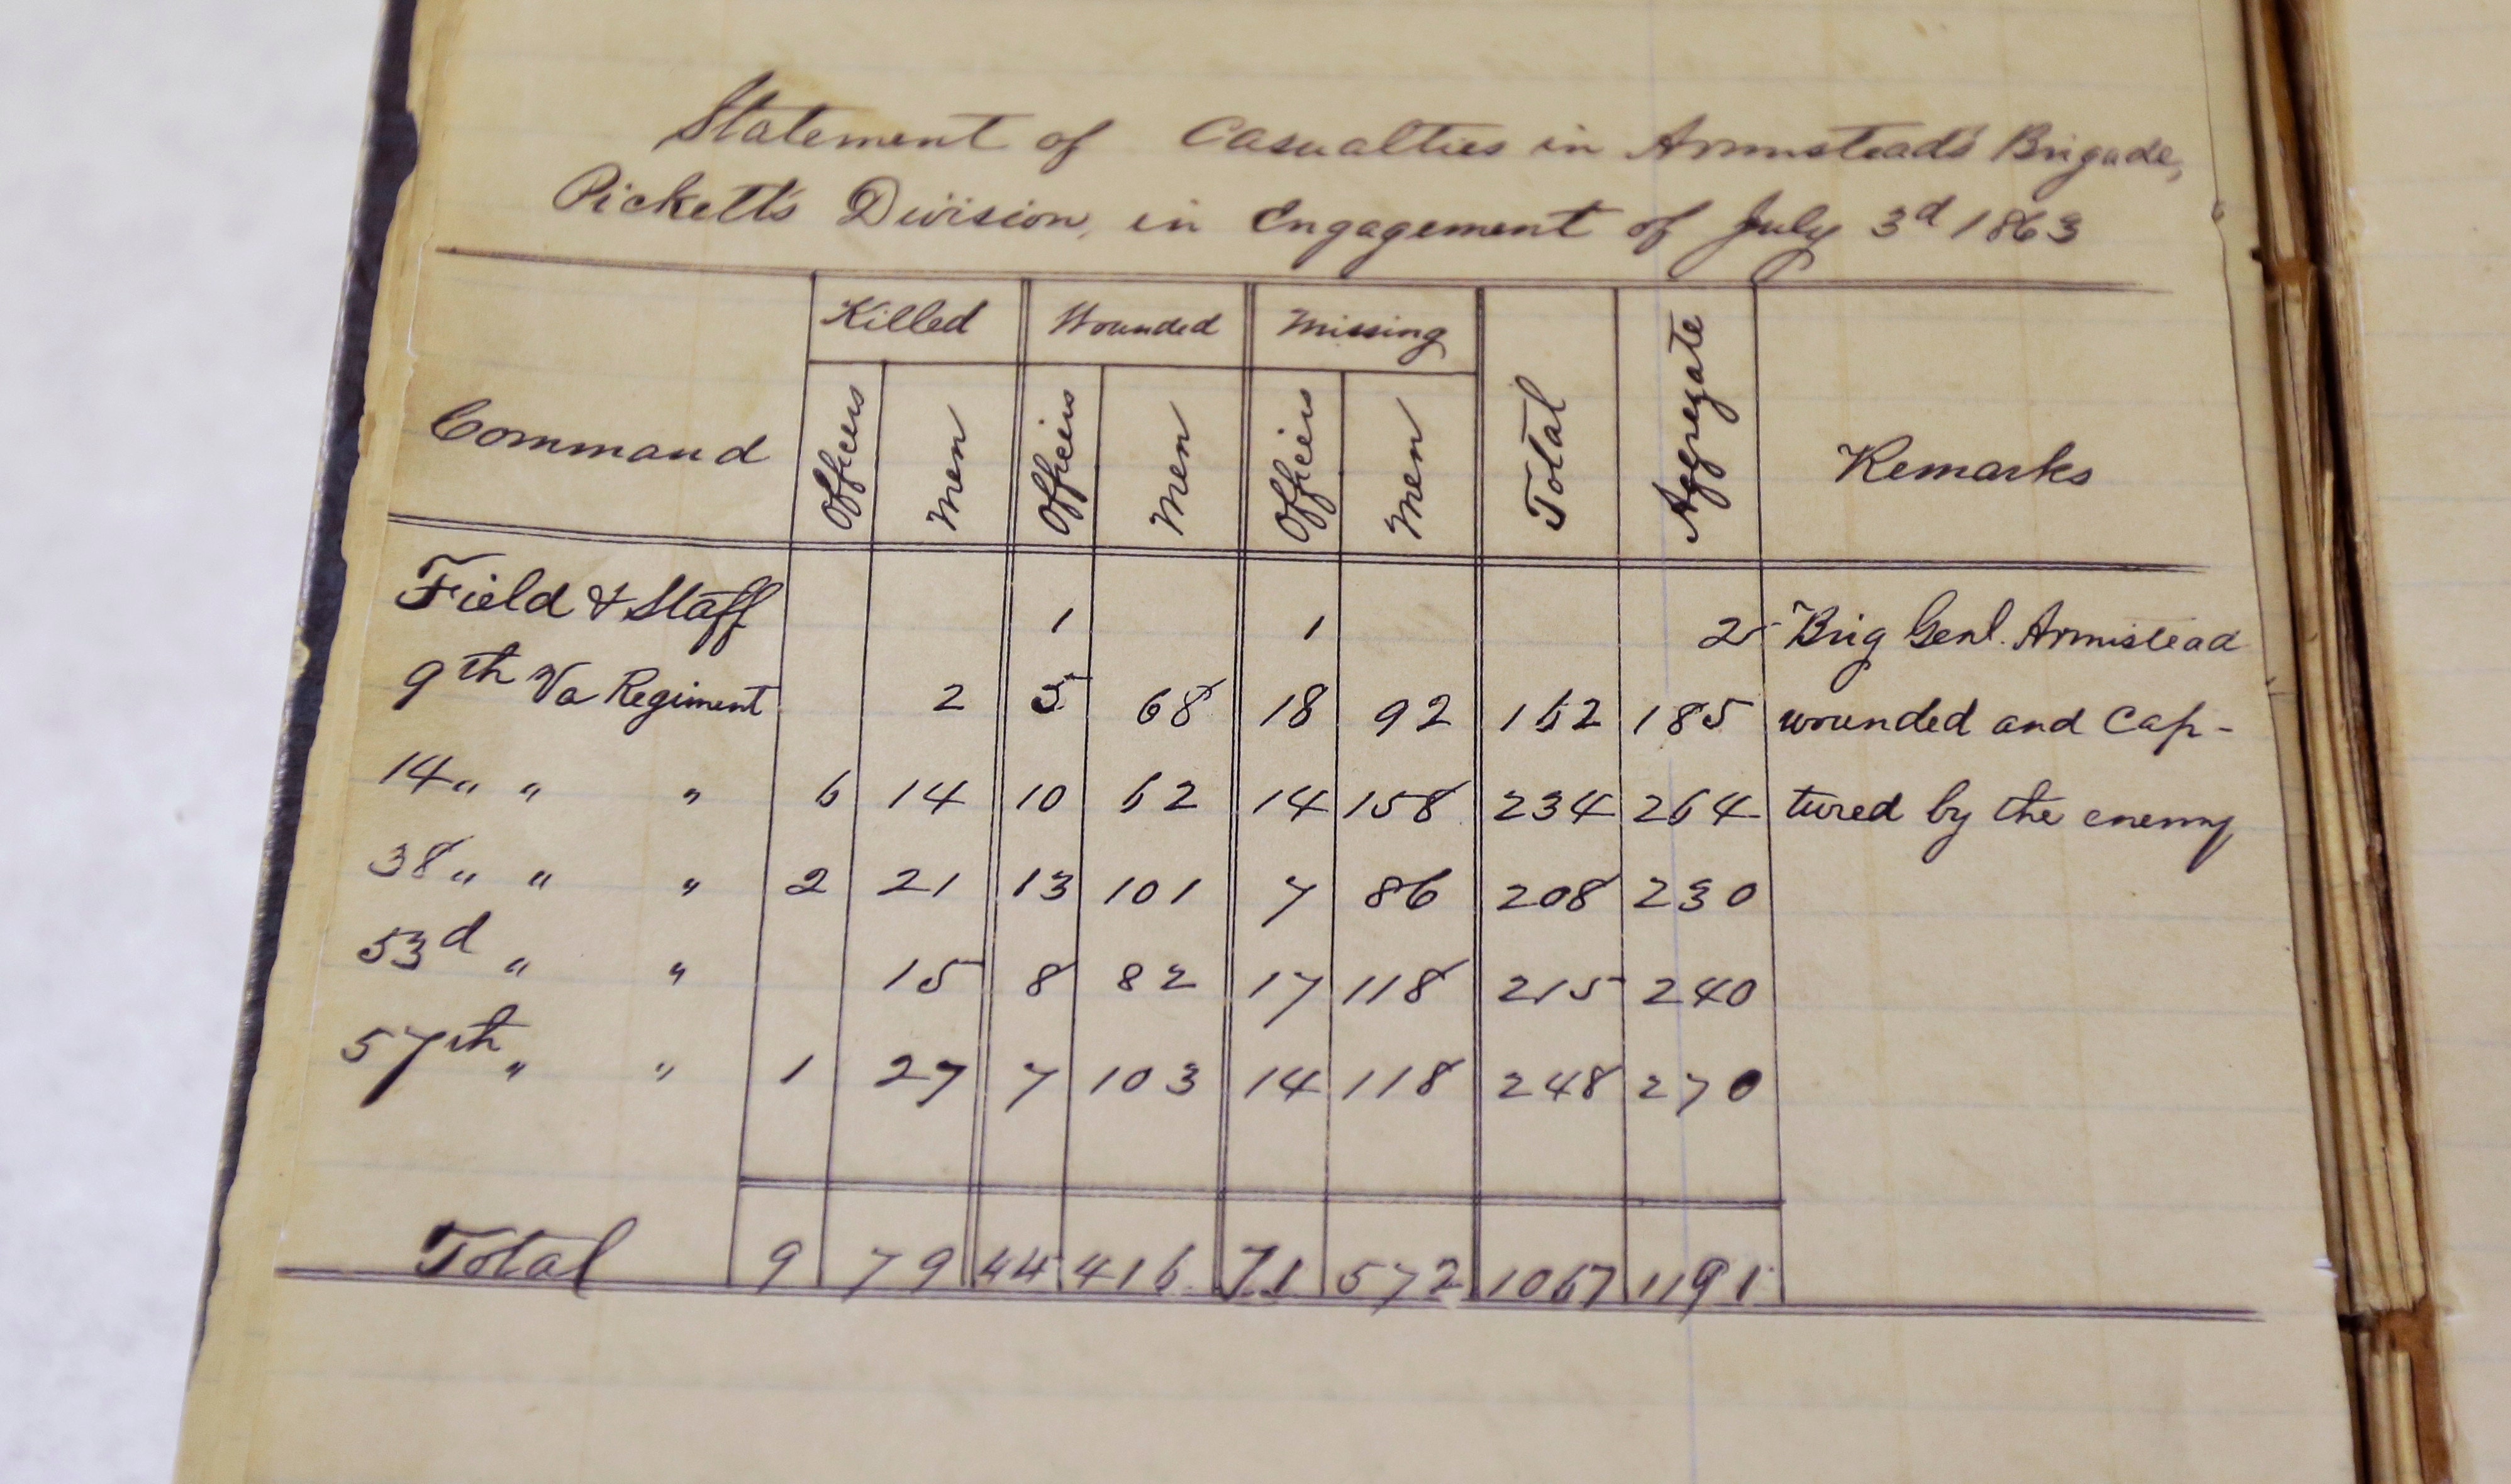 Statement of Casualties in Armistead's Brigade,
Pickett's Division, in Engagement of July 3d 1863
Command Killed Wounded Missing Total Aggregate Remarks
Officers Men Officers Men Officers Men
Field & Staff 1 1 2 Brig Genl. Armistead
9th Va Regiment 2 5 68 18 92 162 185 wounded and Cap-
14 " " " 6 14 10 62 14 158 234 264 tured by the enemy
38 " " " 2 21 13 101 7 86 208 230
53d " " 15 8 82 17 118 215 240
57th " " 1 27 7 103 14 118 248 270
Total 9 79 44 416 71 572 1067 1191